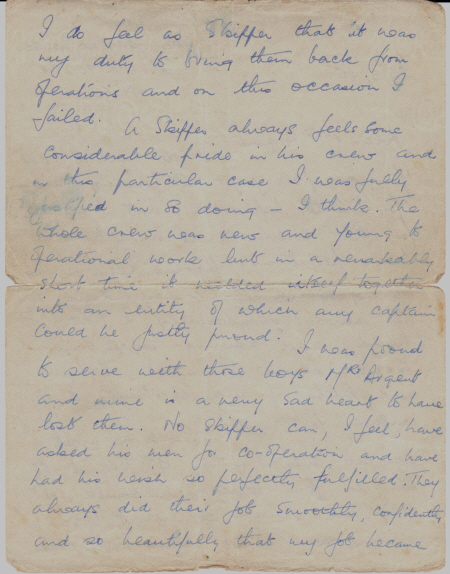 I do feel as Skipper that it was
my duty to bring them back from
Operations and on this occasion I
failed.
A Skipper always feels some
considerable pride in his crew and
in this particular case I was fully
justified in so doing – I think. The
whole crew was new and young to
operational work but in a remarkably
short time it welded itself together
into an entity of which any captain
could be justly proud.
I was proud
to serve with those boys Mrs Argent
and mine is a very sad heart to have
lost them. No Skipper can, I feel, have
asked his men for co-operation and have
had his wish so perfectly fulfilled. They
always did their job smoothly, confidently
and so beautifully that my job became